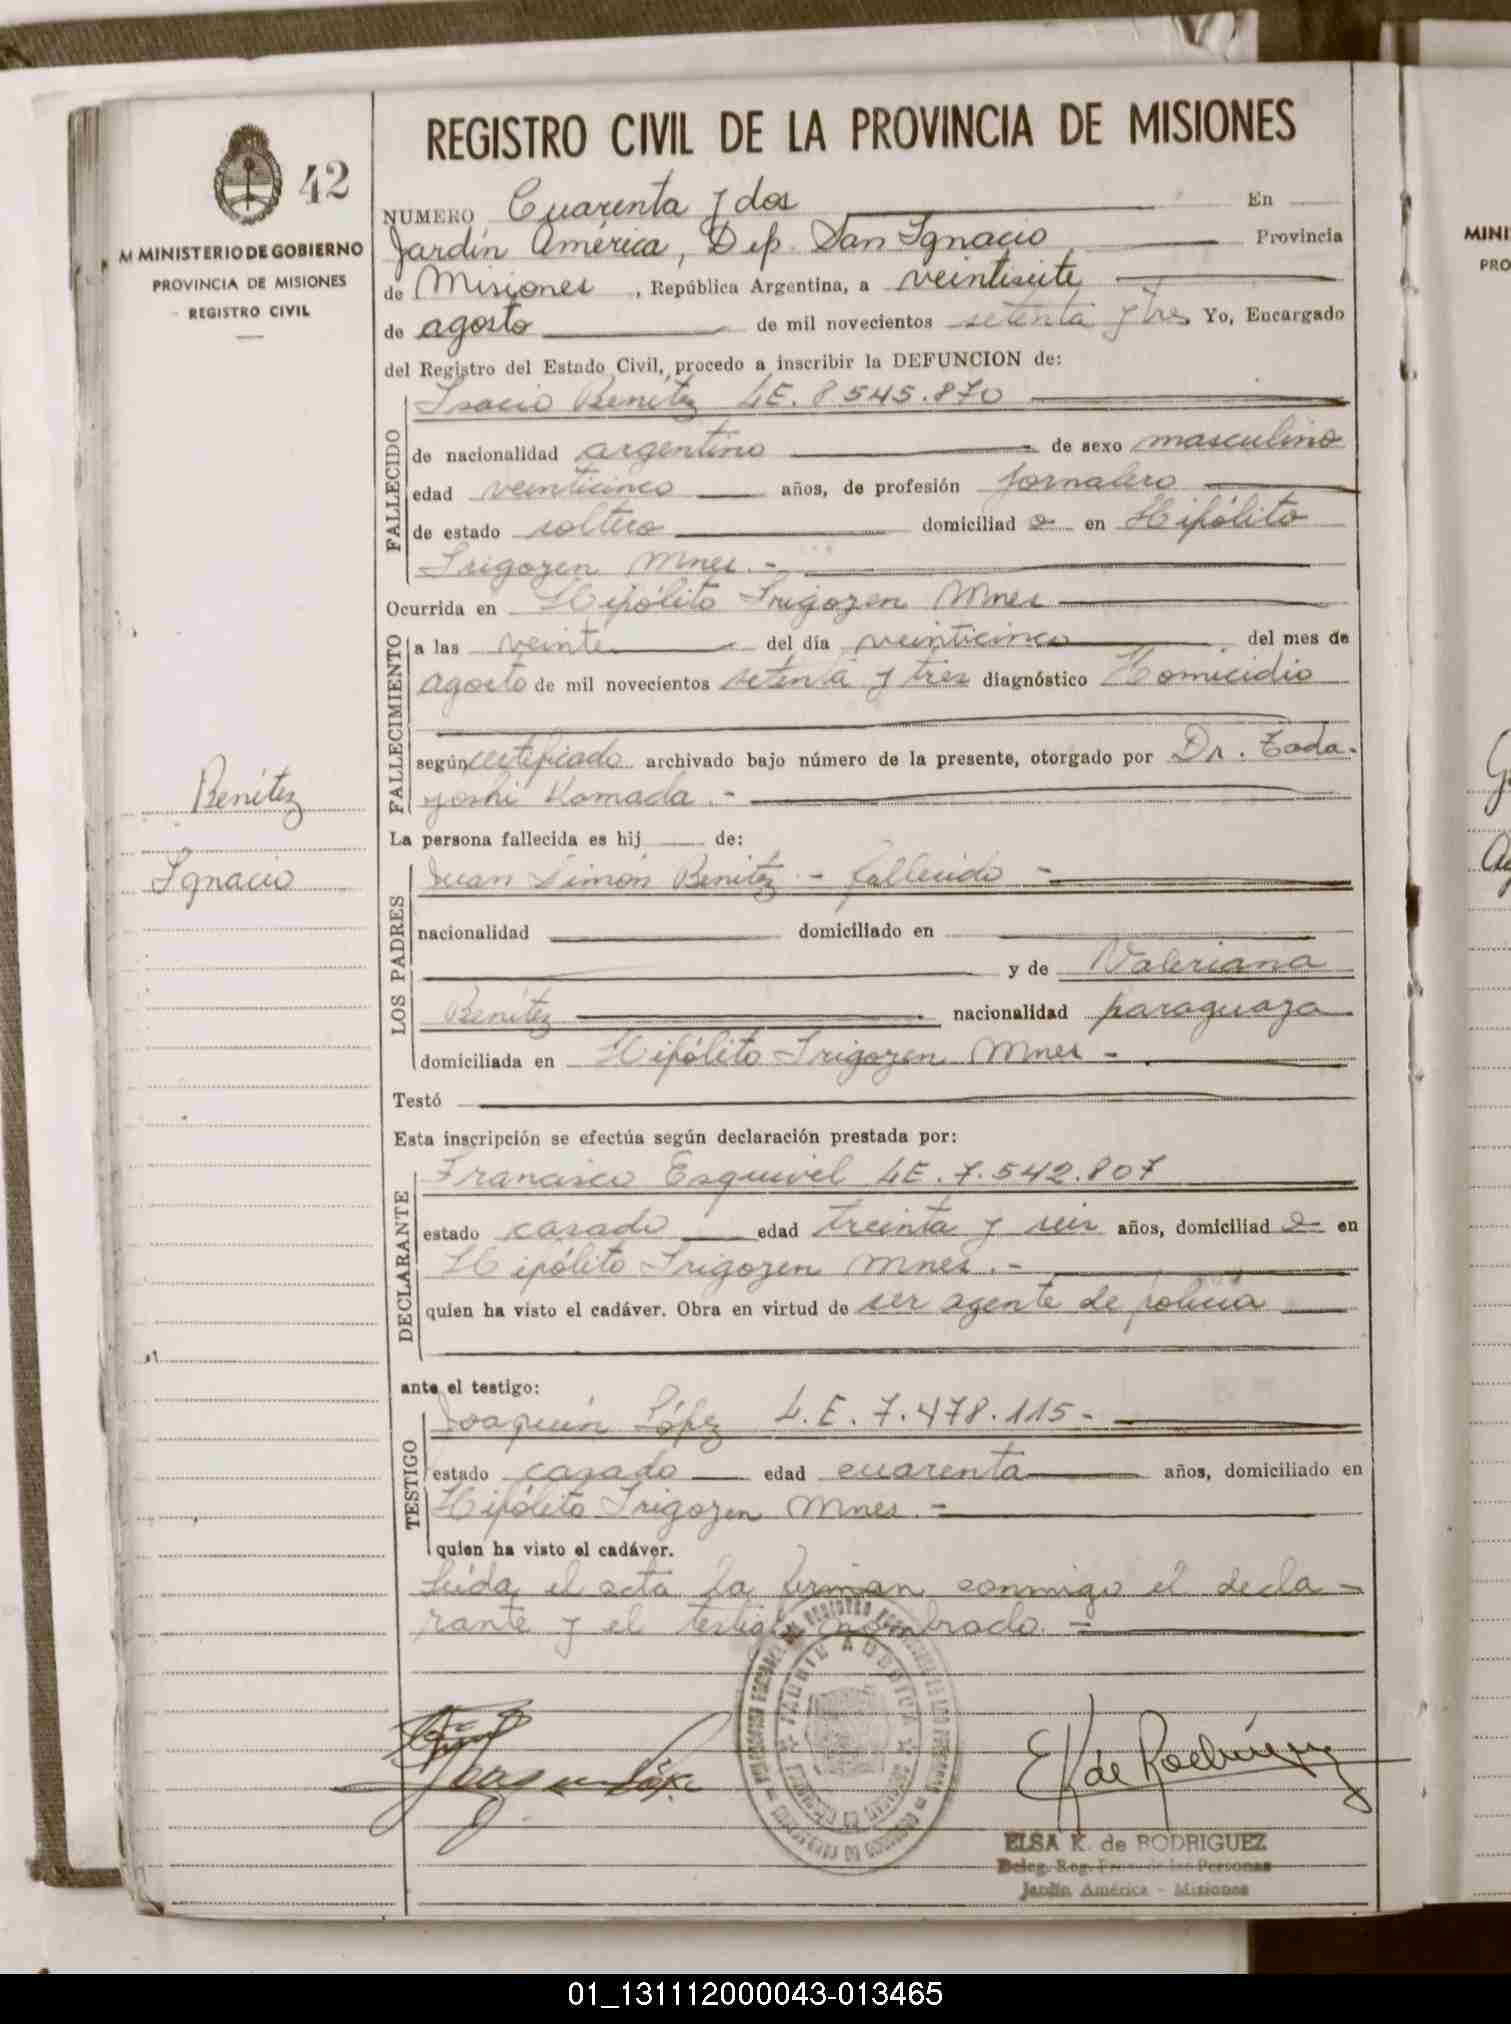 REGISTRO CIVIL DE LA PROVINCIA DE MISIONES
42
M MINISTERIO DE GOBIERNO
PROVINCIA DE MISIONES
REGISTRO CIVIL
NUMERO Cuarenta y dos En
Jardín América, Dep. San Ignacio Provincia
de Misiones, República Argentina, a veintisiete
de agosto de mil novecientos setenta y tres Yo, Encargado
del Registro del Estado Civil, procedo a inscribir la DEFUNCION de:
FALLECIDO
Benítez LE. 8545.870
de nacionalidad argentino de sexo masculino
edad veinticinco años, de profesión jornalero
de estado soltero domiciliad o en Hipólito
Irigoyen Mnes.-
Ocurrida en Hipólito Irigoyen Mnes
FALLECIMIENTO
a las veinte del día veinticinco del mes de
agosto de mil novecientos setenta y tres diagnóstico Homicidio
según certificado archivado bajo número de la presente, otorgado por Dr. Tada-
yoshi Kamada.-
Benítez
Ignacio
La persona fallecida es hij de:
LOS PADRES
Juan Simón Benítez - fallecido -
nacionalidad domiciliado en
y de Valeriana
Benítez nacionalidad paraguaya
domiciliada en Hipólito Irigoyen Mnes -
Testó
Esta inscripción se efectúa según declaración prestada por:
DECLARANTE
Francisco Esquivel LE. 7.542.807
estado casado edad treinta y seis años, domiciliad o en
Hipólito Irigoyen Mnes.-
quien ha visto el cadáver. Obra en virtud de ser agente de policía
ante el testigo:
TESTIGO
Joaquín López L.E. 7.478.115-
estado casado edad cuarenta años, domiciliado en
Hipólito Irigoyen Mnes.-
quien ha visto el cadáver.
Leída el acta la firman conmigo el decla-
rante y el testigo nombrado.-
EK de Rodríguez
ELSA K. de RODRIGUEZ
Deleg. Reg. Prov. de las Personas
Jardín América - Misiones
01_131112000043-013465